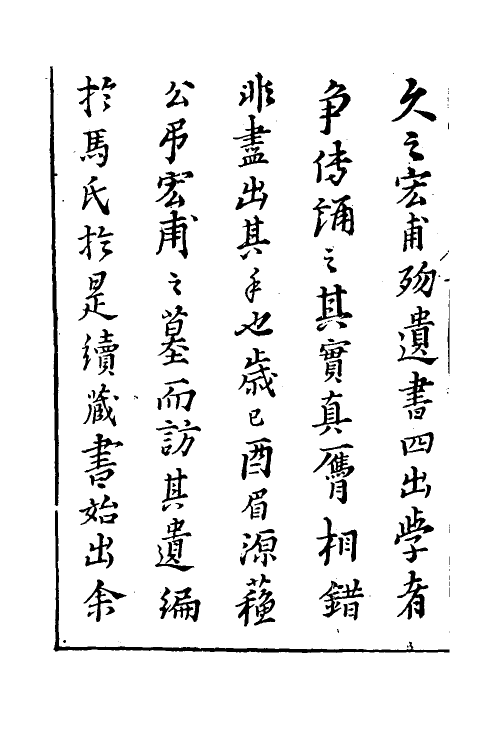 久之宏甫歿遺書四出學者
争傳誦之其實真贋相錯
非盡出其手也歲己酉眉源蘓
公弔宏甫之墓而訪其遺編
於馬氏於是續藏書始出余